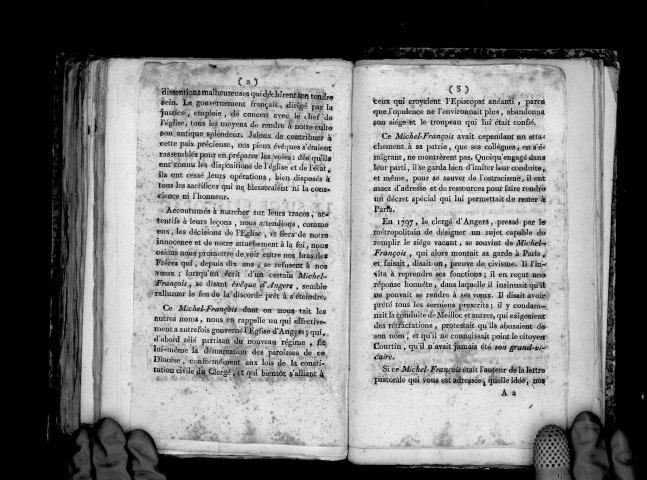 ( 2 )
dissentions malheureuses qui déchirent son tendre
sein. Le gouvernement français, dirigé par la
justice, emploie, de concert avec le chef de
l'église, tous les moyens de rendre à notre culte
son antique splendeur. Jaloux de contribuer à
cette paix précieuse, nos pieux évêques s'étaient
rassemblés pour en préparer les voies : dès qu'ils
ont connu les dispositions de l'église et de l'état,
ils ont cessé leurs opérations, bien disposés à
tous les sacrifices qui ne blesseraient ni la cons-
cience ni l'honneur.
Accoutumés à marcher sur leurs traces, at-
tentifs à leurs leçons, nous attendions, comme
eux, les décisions de l'Eglise, et fiers de notre
innocence et de notre attachement à la foi, nous
osions nous promettre de voir entre nos bras des
Frères qui, depuis dix ans, se refusent à nos
vœux ; lorsqu'un écrit d'un certain Michel-
François, se disant évêque d'Angers, semble
rallumer le feu de la discorde prêt à s'éteindre.
Ce Michel-François dont on nous tait les
autres noms, nous en rappelle un qui effective-
ment a autrefois gouverné l'Eglise d'Angers ; qui,
d'abord zélé partisan du nouveau régime, fit
lui-même la démarcation des paroisses de ce
Diocèse, conformément aux lois de la consti-
tution civile du Clergé, et qui bientôt s'alliant à
( 3 )
ceux qui croyaient l'Episcopat anéanti, parce
que l'opulence ne l'environnait plus, abandonna
son siége et le troupeau qui lui était confié.
Ce Michel-François avait cependant un atta-
chement à sa patrie, que ses collègues, en s'é-
migrant, ne montrèrent pas. Quoiqu'engagé dans
leur parti, il se garda bien d'imiter leur conduite,
et même, pour se sauver de l'ostracisme, il eut
assez d'adresse et de ressources pour faire rendre
un décret spécial qui lui permettait de rester à
Paris.
En 1797, le clergé d'Angers, pressé par le
métropolitain de désigner un sujet capable de
remplir le siége vacant, se souvint de Michel-
François, qui alors montait sa garde à Paris,
et faisait, disait-on, preuve de civisme. Il l'in-
vita à reprendre ses fonctions ; il en reçut une
réponse honnête, dans laquelle il insinuait qu'il
ne pouvait se rendre à ses vœux. Il disait avoir
prêté tous les sermens prescrits ; il y condam-
nait la conduite de Meilloc et autres, qui exigeaient
des rétractations, protestait qu'ils abusaient de
son nom, et qu'il ne connaissait point le citoyen
Courtin, qu'il n'avait jamais été son grand-vi-
caire.
Si ce Michel-François était l'auteur de la lettre
pastorale qui vous est adressée, quelle idée, nos
A 2